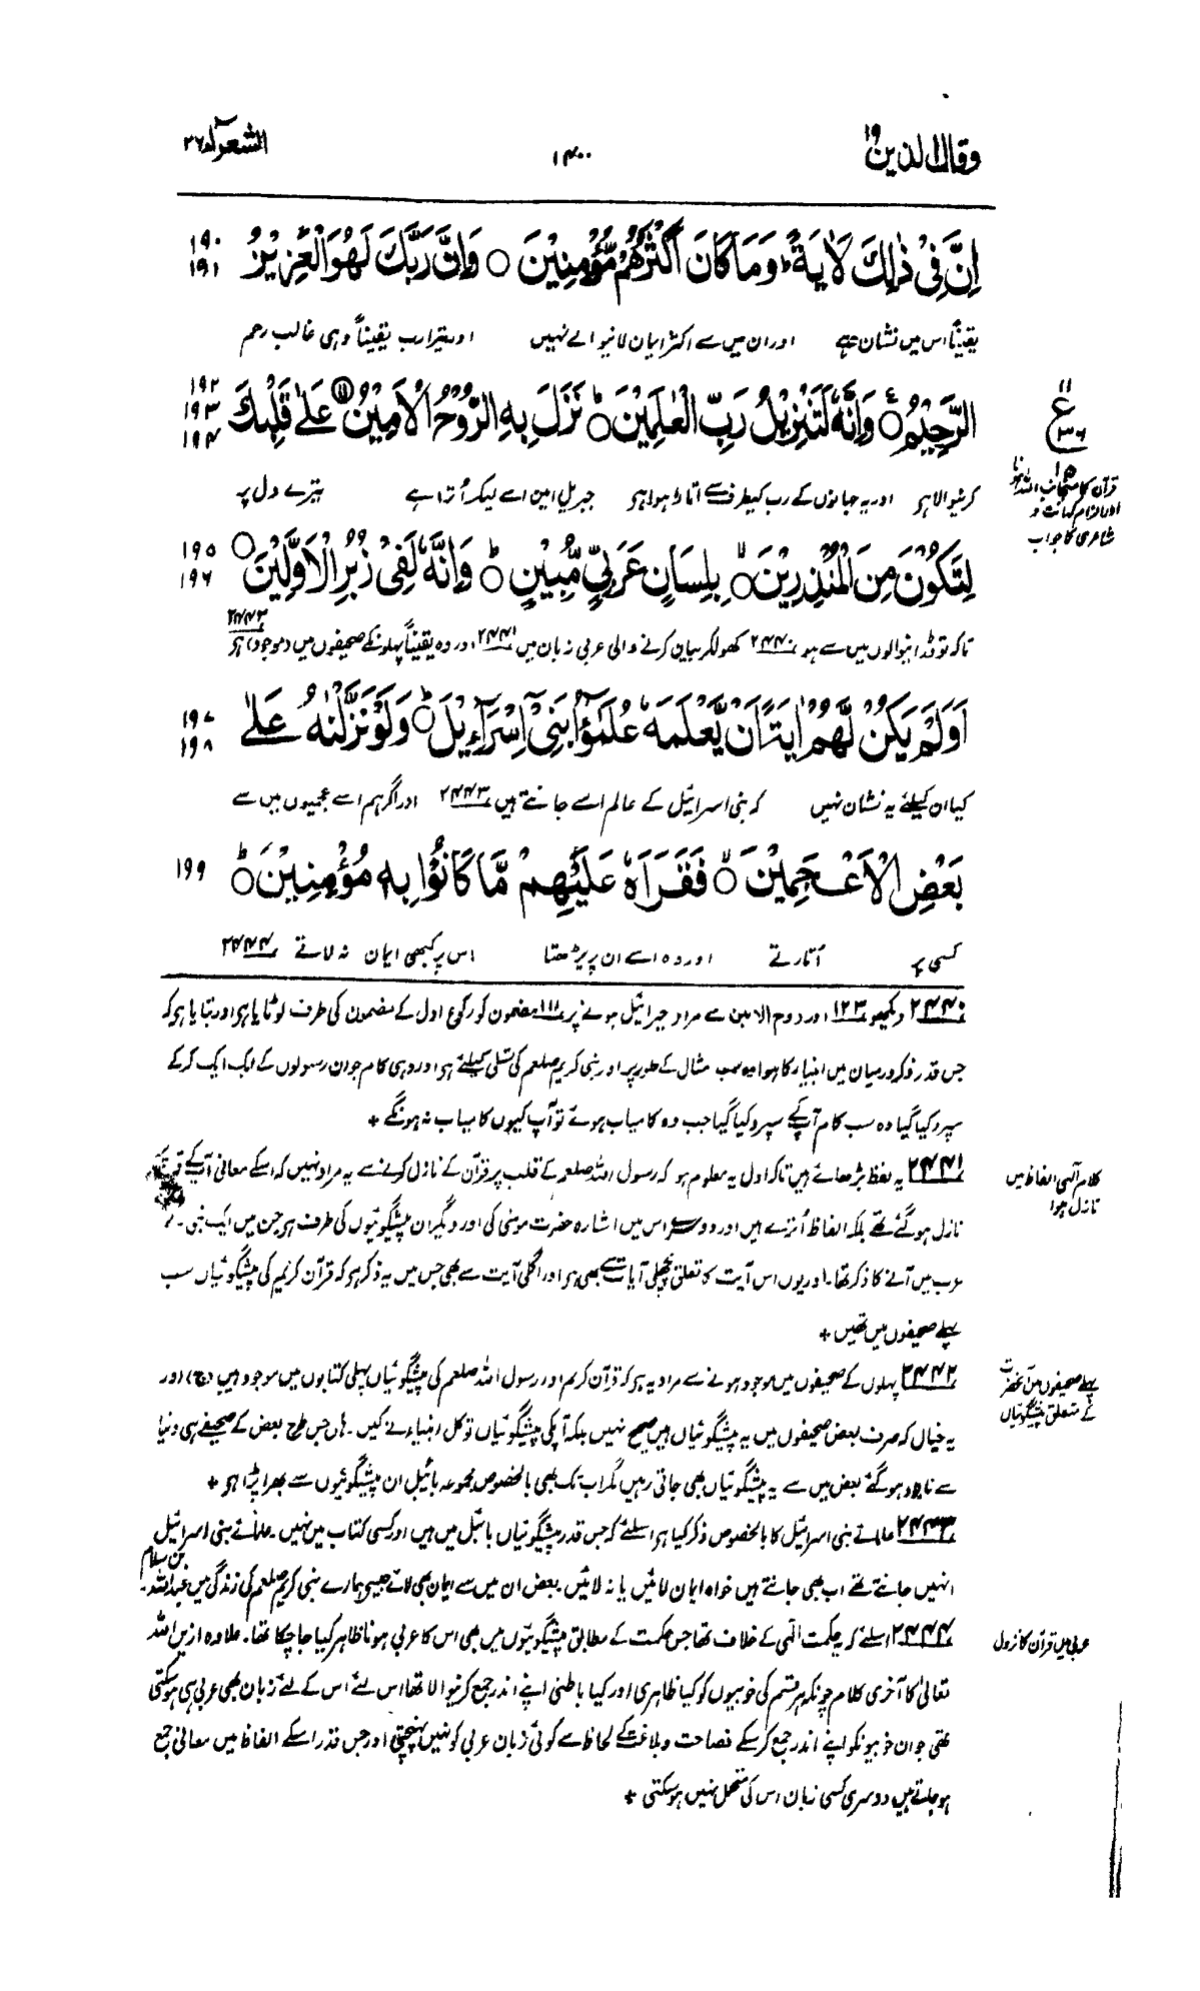 وقال الذین ۱۹
۱۴۰۰
الشعراء ۲۶
اِنَّ فِیْ ذٰلِكَ لَاٰیَةً ؕ وَمَا كَانَ اَكْثَرُهُمْ مُّؤْمِنِیْنَ ○ وَاِنَّ رَبَّكَ لَهُوَ الْعَزِیْزُ
۱۹۰
۱۹۱
یقیناً اس میں نشان ہے اور ان میں سے اکثر ایمان لانیوالے نہیں اور تیرا رب یقیناً وہی غالب رحم
الرَّحِیْمُ ○ وَاِنَّهٗ لَتَنْزِیْلُ رَبِّ الْعٰلَمِیْنَ ○ نَزَلَ بِهِ الرُّوْحُ الْاَمِیْنُ ○ عَلٰی قَلْبِكَ
۱۹۲
۱۹۳
۱۹۴
۱۱
ع
۳۶
۱۵
قرآن کا منجانب اللہ ہونا
اور الزام کہانت و
شاعری کا جواب
کرنیوالا ہو اور یہ جہانوں کے رب کیطرف سے اتارا ہوا ہو جبریل امین اسے لیکر اُترا ہے تیرے دل پر
لِتَكُوْنَ مِنَ الْمُنْذِرِیْنَ ○ بِلِسَانٍ عَرَبِیٍّ مُّبِیْنٍ ○ وَاِنَّهٗ لَفِیْ زُبُرِ الْاَوَّلِیْنَ ○
۱۹۵
۱۹۶
تاکہ تو ڈرانیوالوں میں سے ہو ۲۴۴۰ کھولکر بیان کرنے والی عربی زبان میں ۲۴۴۱ اور وہ یقیناً پہلونکے صحیفوں میں (موجود) ہو ۲۴۴۲
اَوَلَمْ یَكُنْ لَّهُمْ اٰیَةً اَنْ یَّعْلَمَهٗ عُلَمٰٓؤُا بَنِیْ اِسْرَآءِیْلَ ○ وَلَوْ نَزَّلْنٰهُ عَلٰی
۱۹۷
۱۹۸
کیا ان کیلئے یہ نشان نہیں کہ بنی اسرائیل کے عالم اسے جانتے ہیں ۲۴۴۳ اور اگر ہم اسے عجمیوں میں سے
بَعْضِ الْاَعْجَمِیْنَ ○ فَقَرَاَهٗ عَلَیْهِمْ مَّا كَانُوْا بِهٖ مُؤْمِنِیْنَ ○
۱۹۹
کسی پر اُتارتے اور وہ اسے ان پر پڑھتا اس پر کبھی ایمان نہ لاتے ۲۴۴۴
۲۴۴۰ دیکھو ۱۲۳ اور روح الامین سے مراد جبرائیل ہونے پر ۱۱۱ مضمون کو رکوع اول کے مضمون کی طرف لوٹا یا ہو اور بتایا ہو کہ
جس قدر ذکر درمیان میں انبیاء کا ہوا وہ سب مثال کے طور پر اور نبی کریم صلعم کی تسلی کیلئے ہو اور وہی کام جو ان رسولوں کے ایک ایک کر کے
سپرد کیا گیا وہ سب کام آپکے سپرد کیا گیا جب وہ کامیاب ہوئے تو آپ کیوں کامیاب نہ ہونگے +
۲۴۴۱ یہ لفظ بڑھائے ہیں تاکہ اول یہ معلوم ہو کہ رسول اللہ صلعم کے قلب پر قرآن کے نازل کرنے سے یہ مراد نہیں کہ اسکے معانی آپکے
کلام الٰہی الفاظ میں
نازل ہوا
نازل ہو گئے تھے بلکہ الفاظ اُترے ہیں اور دوسرے اس میں اشارہ حضرت موسیٰ کی اور دیگر ان پیشگوئیوں کی طرف ہو جن میں ایک نبی کے
عرب میں آنے کا ذکر تھا۔ اور یوں اس آیت کا تعلق پچھلی آیات سے بھی ہو اور اگلی آیت سے بھی جس میں یہ ذکر ہو کہ قرآن کریم کی پیشگوئیاں سب
پہلے صحیفوں میں تھیں +
۲۴۴۲ پہلوں کے صحیفوں میں موجود ہونے سے مراد یہ ہو کہ قرآن کریم اور رسول اللہ صلعم کی پیشگوئیاں پہلی کتابوں میں موجود ہیں (ج) اور
پہلے صحیفوں میں آنحضرت
کے متعلق پیشگوئیاں
یہ خیال کہ صرف بعض صحیفوں میں یہ پیشگوئیاں ہیں صحیح نہیں بلکہ آپکی پیشگوئیاں تو کل انبیاء نے کیں۔ ہاں جس طرح بعض کے صحیفے ہی دنیا
سے نابود ہو گئے بعض میں سے یہ پیشگوئیاں بھی جاتی رہیں مگر اب تک بھی بالخصوص مجموعہ بائبل ان پیشگوئیوں سے بھرا پڑا ہو +
۲۴۴۳ علمائے بنی اسرائیل کا بالخصوص ذکر کیا ہو اسلئے کہ جس قدر پیشگوئیاں بائبل میں ہیں اور کسی کتاب میں نہیں۔ علمائے بنی اسرائیل
انہیں جانتے تھے اب بھی جانتے ہیں خواہ ایمان لائیں یا نہ لائیں۔ بعض ان میں سے ایمان بھی لائے جیسے ہمارے نبی کریم صلعم کی زندگی میں عبداللہ بن سلام
۲۴۴۴ اسلئے کہ یہ حکمت الٰہی کے خلاف تھا جس حکمت کے مطابق پیشگوئیوں میں بھی اس کا عربی ہونا ظاہر کیا جا چکا تھا۔ علاوہ ازیں اللہ
عربی میں قرآن کا نزول
تعالیٰ کا آخری کلام چونکہ ہر قسم کی خوبیوں کو کیا ظاہری اور کیا باطنی اپنے اندر جمع کرنیوالا تھا اس لئے اس کے لئے زبان بھی عربی ہی ہو سکتی
تھی جو ان خوبیونکو اپنے اندر جمع کر سکے فصاحت و بلاغت کے لحاظ سے کوئی زبان عربی کو نہیں پہنچتی اور جس قدر اسکے الفاظ میں معانی جمع
ہو جاتے ہیں دوسری کسی زبان اس کی متحمل نہیں ہو سکتی +